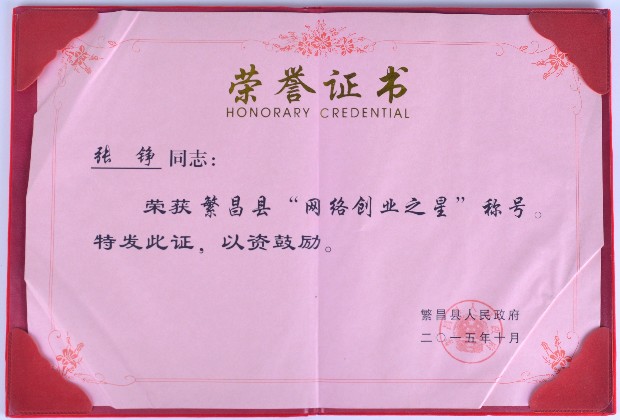 荣誉证书
HONORARY CREDENTIAL
张 铮 同志：
荣获繁昌县“网络创业之星”称号。
特发此证，以资鼓励。
繁昌县人民政府
二〇一五年十月